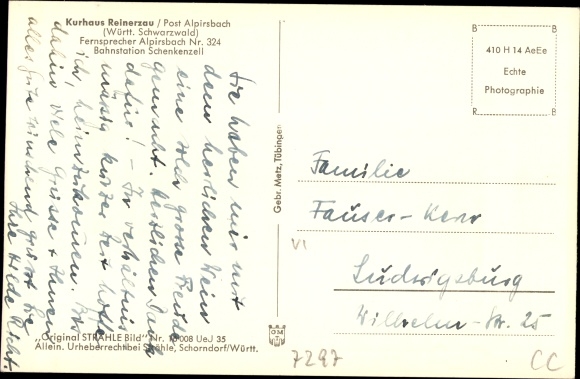 Kurhaus Reinerzau / Post Alpirsbach
(Württ. Schwarzwald)
Fernsprecher Alpirsbach Nr. 324
Bahnstation Schenkenzell
Sie haben mir mit
dem herrlichen Wein
eine solch grosse Freude
gemacht. Herzlichen Dank
dafür! - In verhältnis-
mässig kurzer Zeit hoffe
ich, heimzukommen. Bis
dahin viele Grüsse & Ihnen
alles Gute wünschend grüsst Sie
Ihre Hilde
„Original STRÄHLE Bild" Nr. 15008 UeJ 35
Allein. Urheberrecht bei Strähle, Schorndorf/Württ.
Gebr. Metz, Tübingen
B B
410 H 14 AeEe
Echte
Photographie
R B
Familie
Fauser-Kerr
Ludwigsburg
Wilhelm-Str. 25
VI
7297
CC